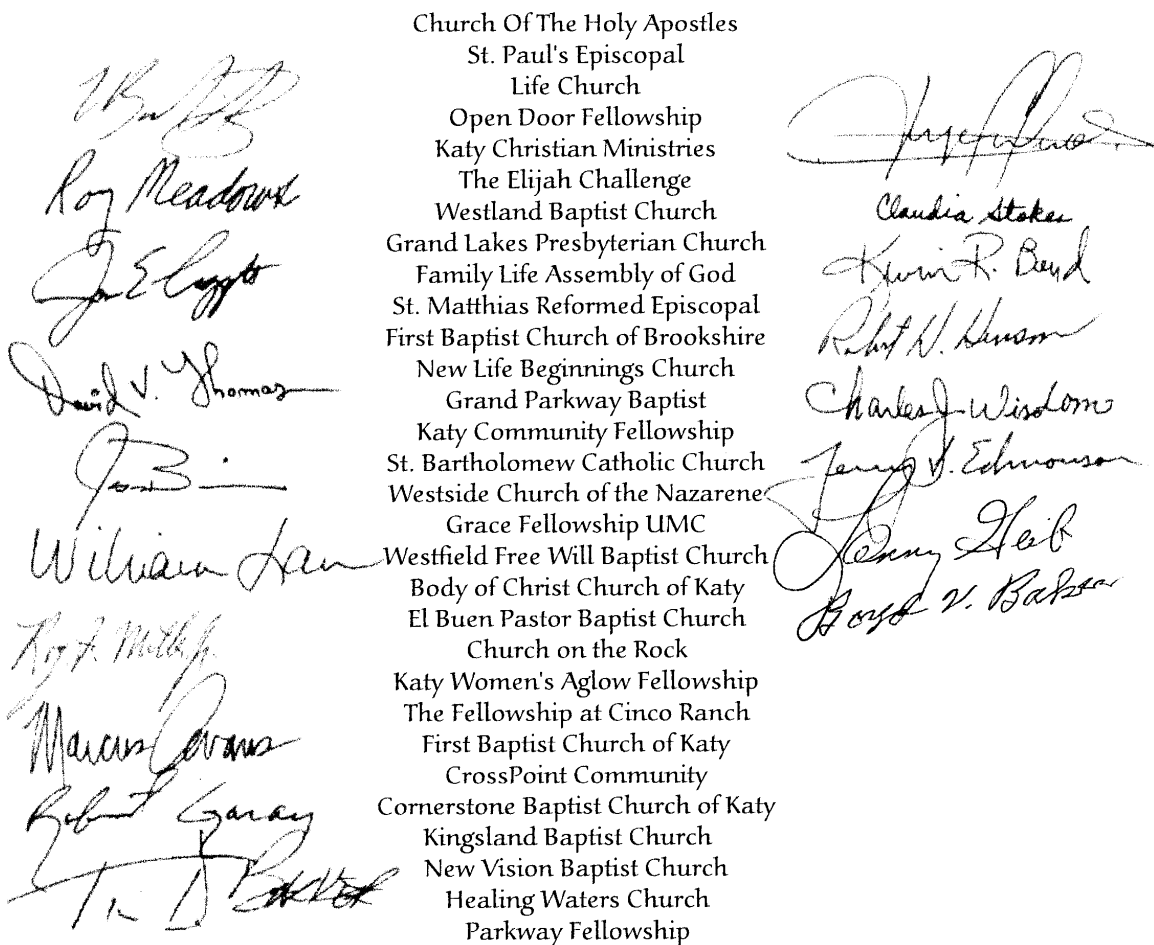 Church Of The Holy Apostles
St. Paul's Episcopal
Life Church
Open Door Fellowship
Katy Christian Ministries
The Elijah Challenge
Westland Baptist Church
Grand Lakes Presbyterian Church
Family Life Assembly of God
St. Matthias Reformed Episcopal
First Baptist Church of Brookshire
New Life Beginnings Church
Grand Parkway Baptist
Katy Community Fellowship
St. Bartholomew Catholic Church
Westside Church of the Nazarene
Grace Fellowship UMC
Westfield Free Will Baptist Church
Body of Christ Church of Katy
El Buen Pastor Baptist Church
Church on the Rock
Katy Women's Aglow Fellowship
The Fellowship at Cinco Ranch
First Baptist Church of Katy
CrossPoint Community
Cornerstone Baptist Church of Katy
Kingsland Baptist Church
New Vision Baptist Church
Healing Waters Church
Parkway Fellowship
Roy Meadows
David V. Thomas
William
Roy
Marcus Evans
Robert Garay
Claudia Stokes
Kevin R. Boyd
Robert
Charles J. Wisdom
V. Edmonson
Boyd V.